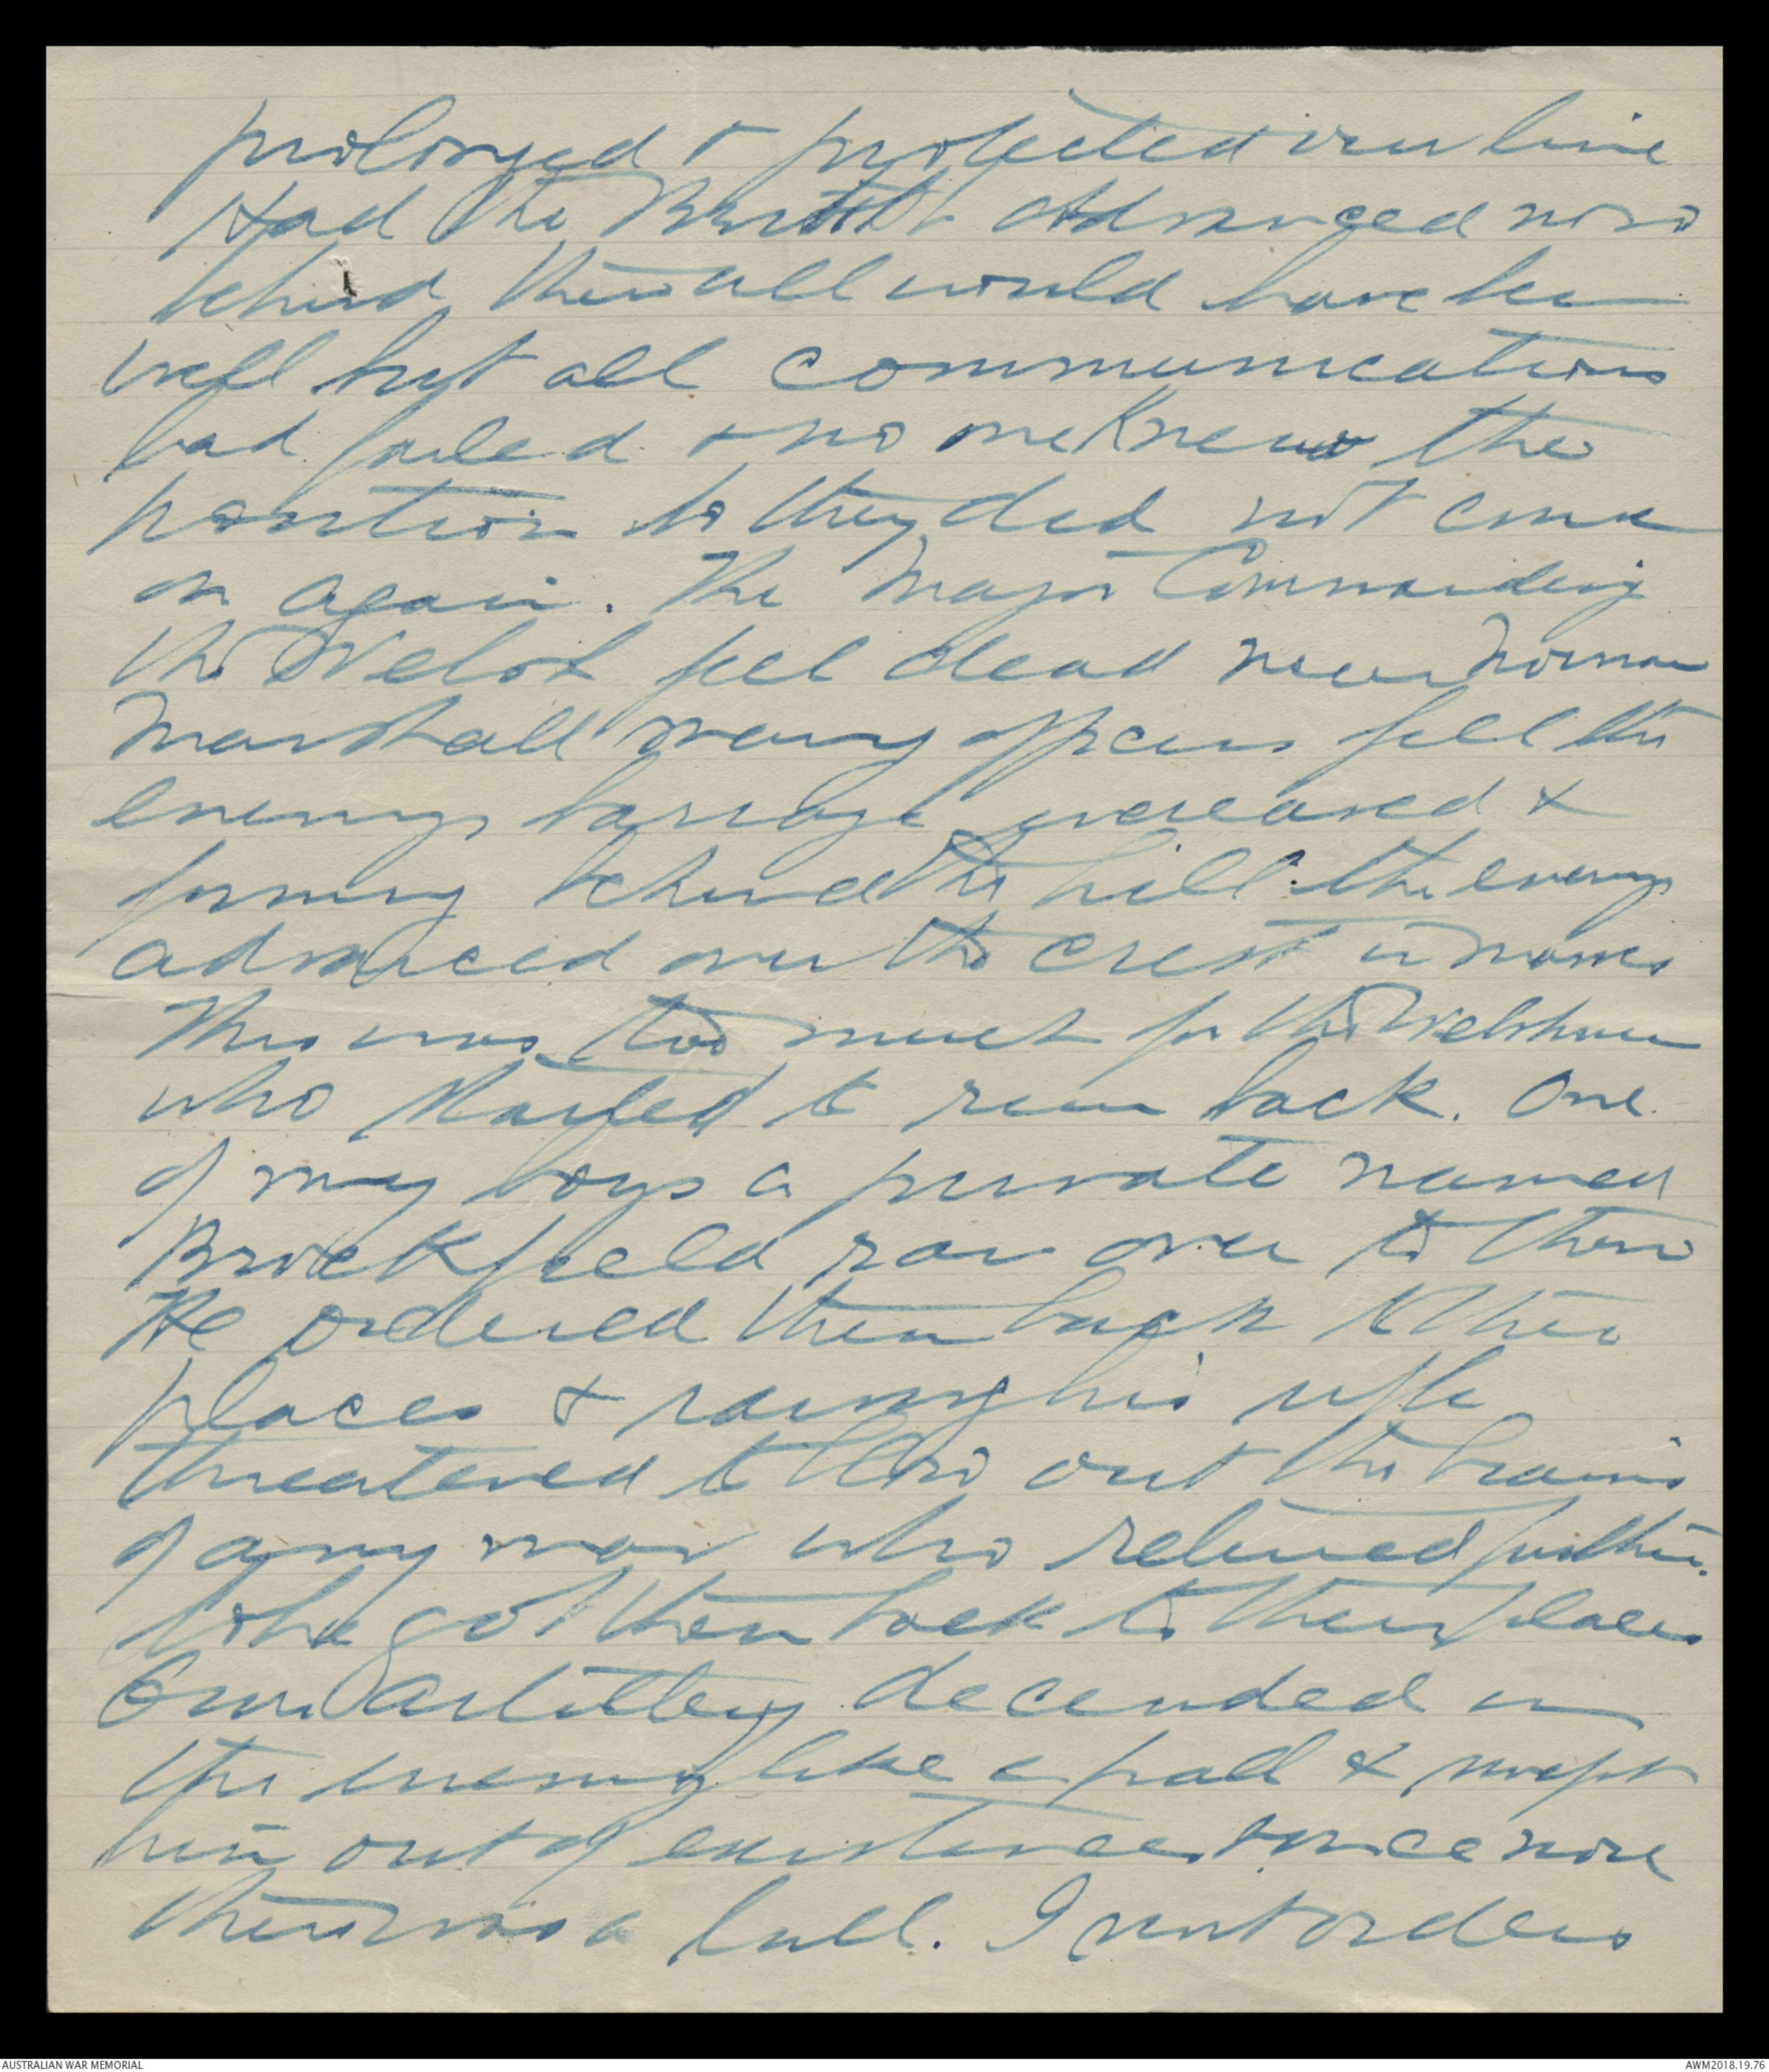 prolonged & protected our line
Had the British Advanced now
behind them all would have been
well but all communications
had failed & no one knew the
position so they did not come
on again. The Major Commanding
the Welsh fell dead near Norman
Marshall many officers fell the
enemys barrage increased &
forming behind the hill the enemy
advanced over the crest in masses
This was too much for the Welshmen
who started to run back. One
of my boys a private named
Brockfield ran over to them
He ordered them back to their
places & raising his rifle
threatened to blow out the brains
of any man who retired further.
So he got them back to their places
Our Artillery decended on
the enemy like a pall & swept
him out of existence & once more
there was a lull. I sent orders
AUSTRALIAN WAR MEMORIAL
AWM2018.19.76